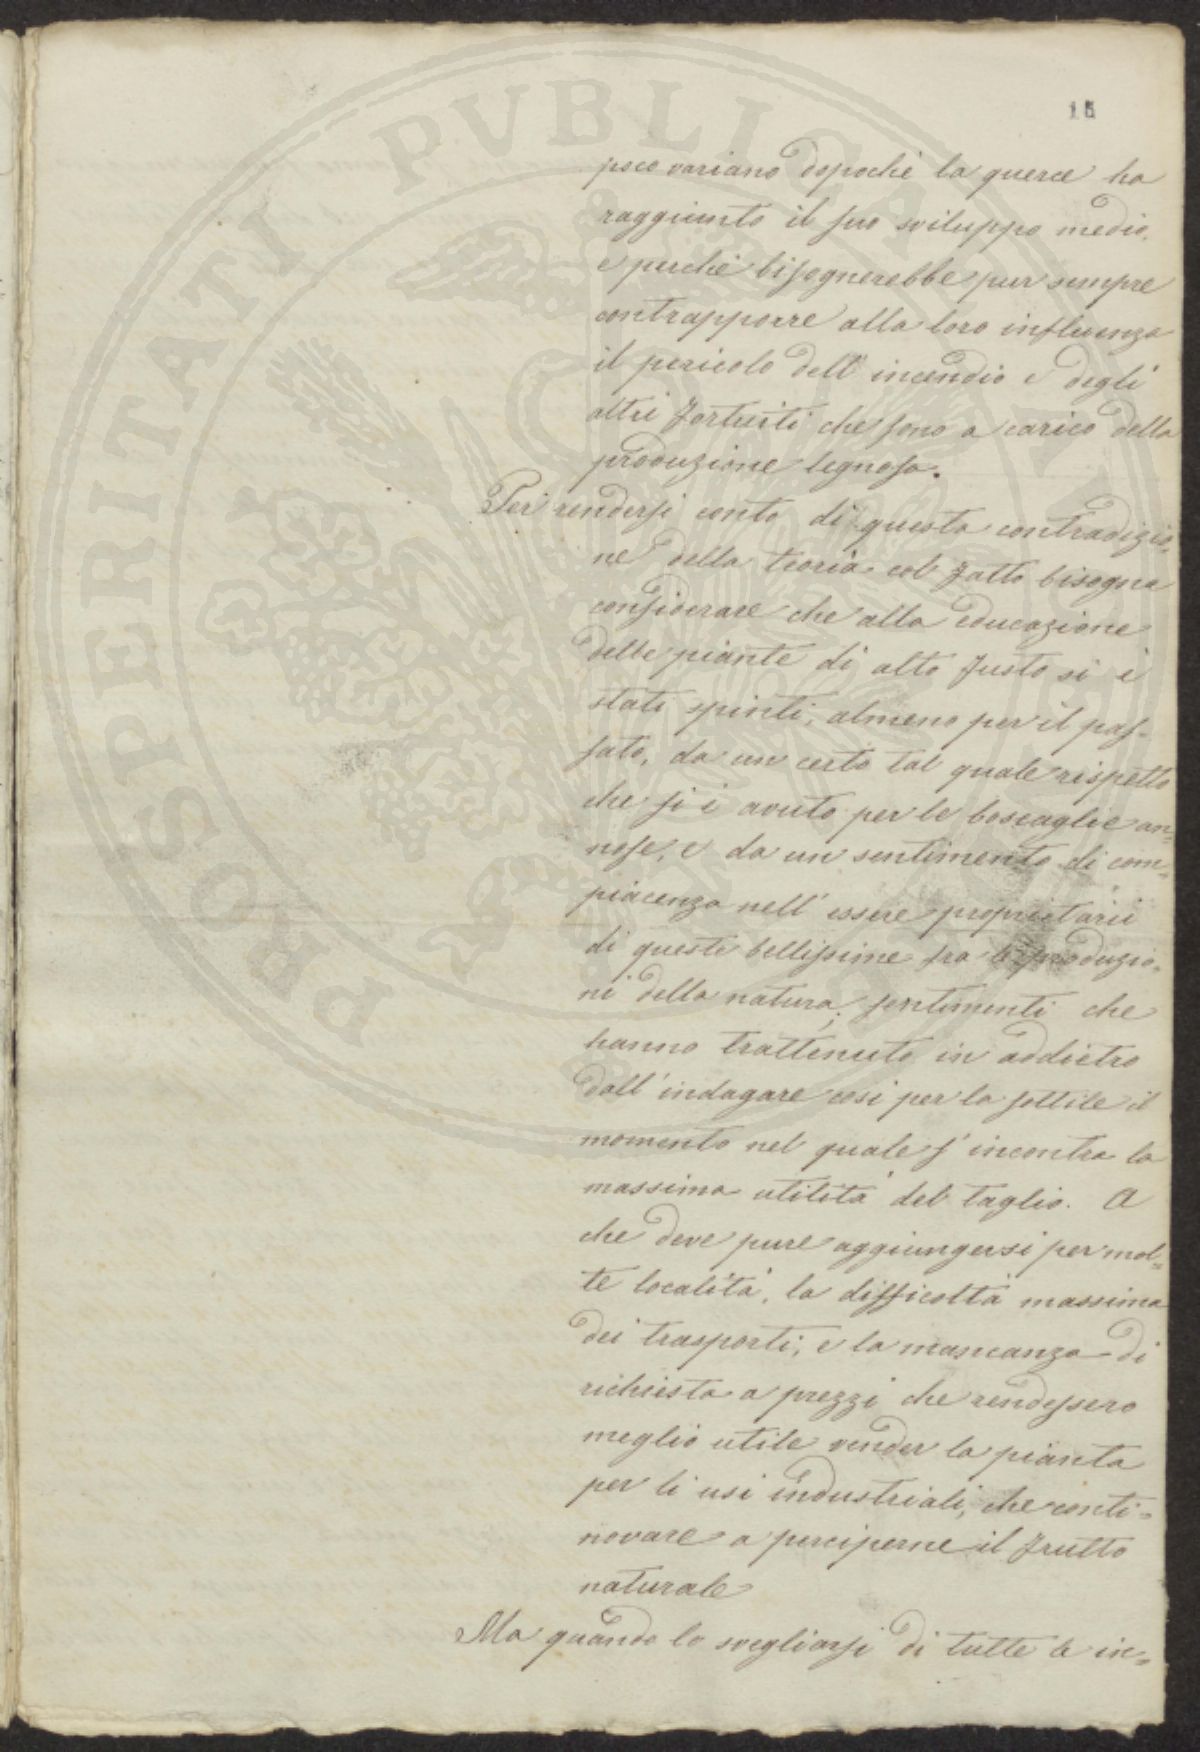 PROSPERITATI PVBLICAE
15
poco variano dopochè la querce ha
raggiunto il suo sviluppo medio,
e perchè bisognerebbe pur sempre
contrapporre alla loro influenza
il pericolo dell'incendio e degli
altri fortuiti che sono a carico della
produzione legnosa.
Per rendersi conto di questa contradizio-
ne della teoria col fatto bisogna
considerare che alla educazione
delle piante di alto fusto si è
stati spinti, almeno per il pas-
sato, da un certo tal quale rispetto
che si è avuto per le boscaglie an-
nose, e da un sentimento di com-
piacenza nell'essere proprietarii
di queste bellissime fra le produzio-
ni della natura; sentimenti che
hanno trattenuto in addietro
dall'indagare così per la sottile il
momento nel quale s'incontra la
massima utilità del taglio. A
che deve pure aggiungersi per mol-
te località, la difficoltà massima
dei trasporti, e la mancanza di
richiesta a prezzi che rendessero
meglio utile vender la pianta
per li usi industriali, che conti-
novare a perciperne il frutto
naturale
Ma quando lo svegliarsi di tutte le in-